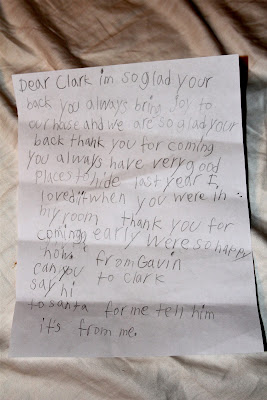 Dear Clark im so glad your
back you always bring Joy to
our house and we are so glad your
back thank you for coming
you always have very good
places to hide last year I
loved it when you were in
my room thank you for
coming early were so happy
now. from Gavin
can you to Clark
say hi
to santa for me tell him
its from me.